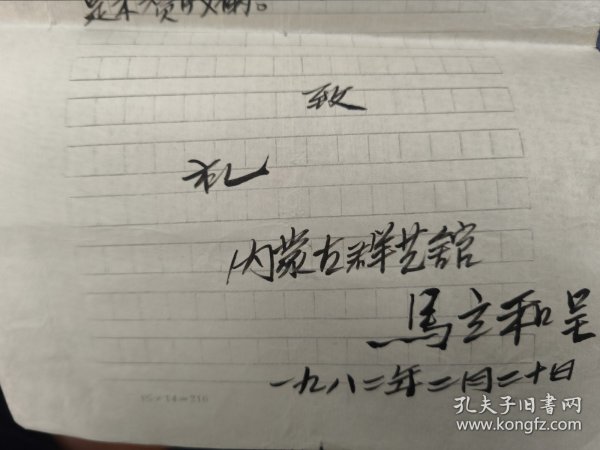 致
礼
内蒙古群艺馆
馬立和呈
一九八二年二月二十日
15×14=210
孔夫子旧书网
www.kongfz.com